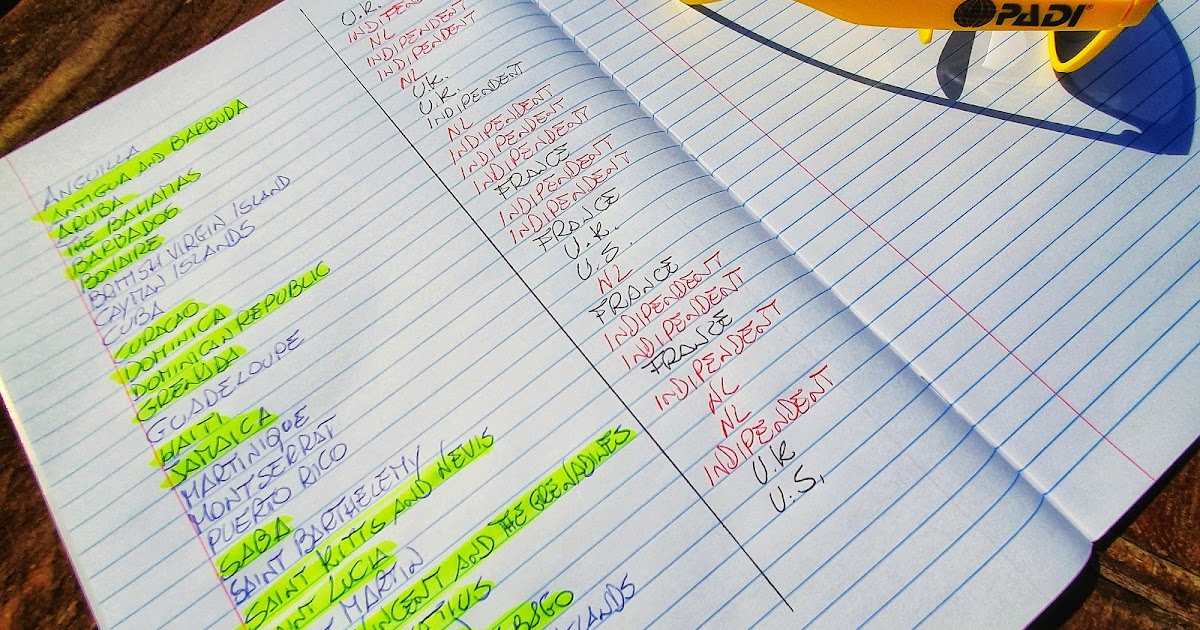 ANGUILLA
ANTIGUA AND BARBUDA
ARUBA
THE BAHAMAS
BARBADOS
BONAIRE
BRITISH VIRGIN ISLAND
CAYMAN ISLANDS
CUBA
CURACAO
DOMINICA
DOMINICAN REPUBLIC
GRENADA
GUADELOUPE
HAITI
JAMAICA
MARTINIQUE
MONTSERRAT
PUERTO RICO
SABA
SAINT BARTHELEMY
SAINT KITTS AND NEVIS
LUCIA
MARTIN
VINCENT AND THE GRENADINES
U.K.
NL
INDIPENDENT
INDIPENDENT
NL
U.K.
U.K.
INDIPENDENT
NL
INDIPENDENT
INDIPENDENT
INDIPENDENT
FRANCE
INDIPENDENT
INDIPENDENT
FRANCE
U.K.
U.S.
NL
FRANCE
INDIPENDENT
INDIPENDENT
FRANCE
INDIPENDENT
NL
NL
INDIPENDENT
U.K
U.S.
PADI